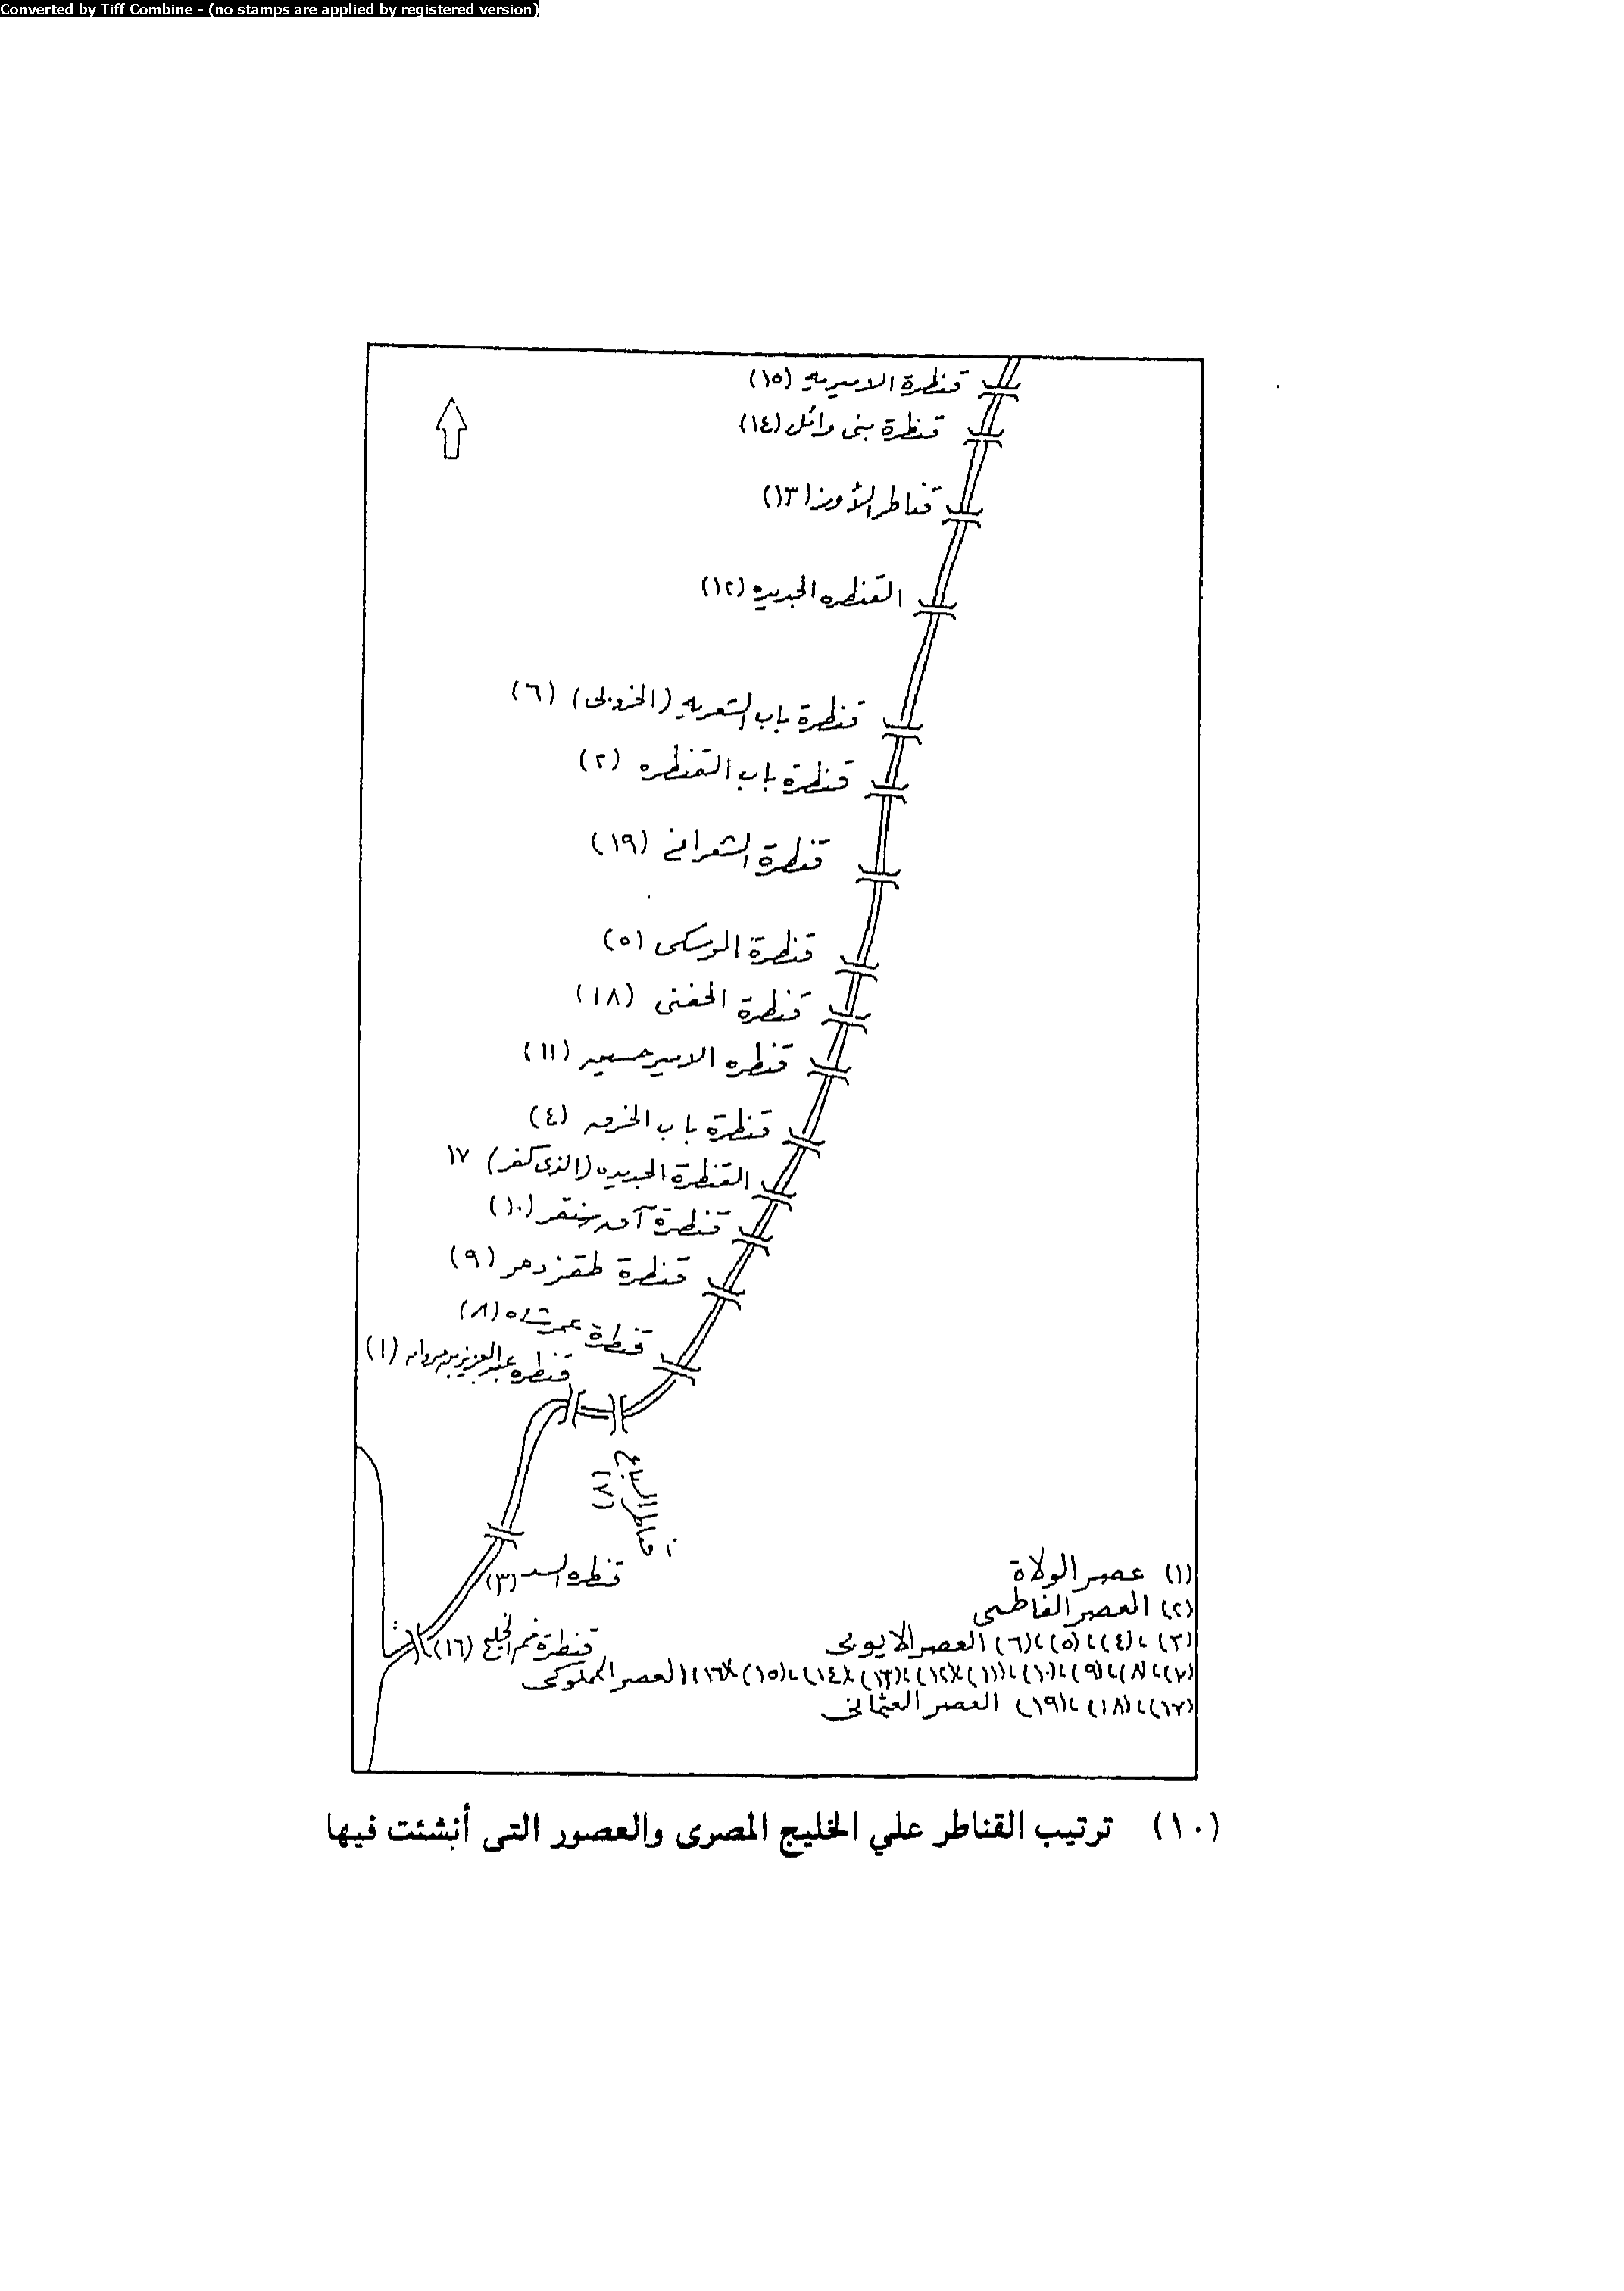 Converted by Tiff Combine - (no stamps are applied by registered version)
قنطرة الاميريه (١٥)
قنطرة بنى وائل (١٤)
قناطر الأوز (١٣)
القنطره الجديده (١٢)
قنطرة باب الشعريه (الخروبى) (٦)
قنطرة باب القنطره (٢)
قنطرة الشعرانى (١٩)
قنطرة الموسكى (٥)
قنطرة الحفنى (١٨)
قنطره الامير حسين (١١)
قنطرة باب الخرق (٤)
القنطرة الجديده (الذى كفر) ١٧
قنطرة آق سنقر (١٠)
قنطرة طقزدمر (٩)
قنطرة عمر شاه (٨)
قنطره عبد العزيز بن مروان (١)
قناطر السباع (٧)
قنطره السد (٣)
قنطرة فم الخليج (١٦)
(١) عصر الولاة
(٢) العصر الفاطمى
(٣)، (٤)، (٥)، (٦) العصر الايوبى
(٧)، (٨)، (٩)، (١٠)، (١١)، (١٢)، (١٣)، (١٤)، (١٥)، (١٦) العصر المملوكى
(١٧)، (١٨)، (١٩) العصر العثمانى
(١٠) ترتيب القناطر علي الخليج المصرى والعصور التى أنشئت فيها